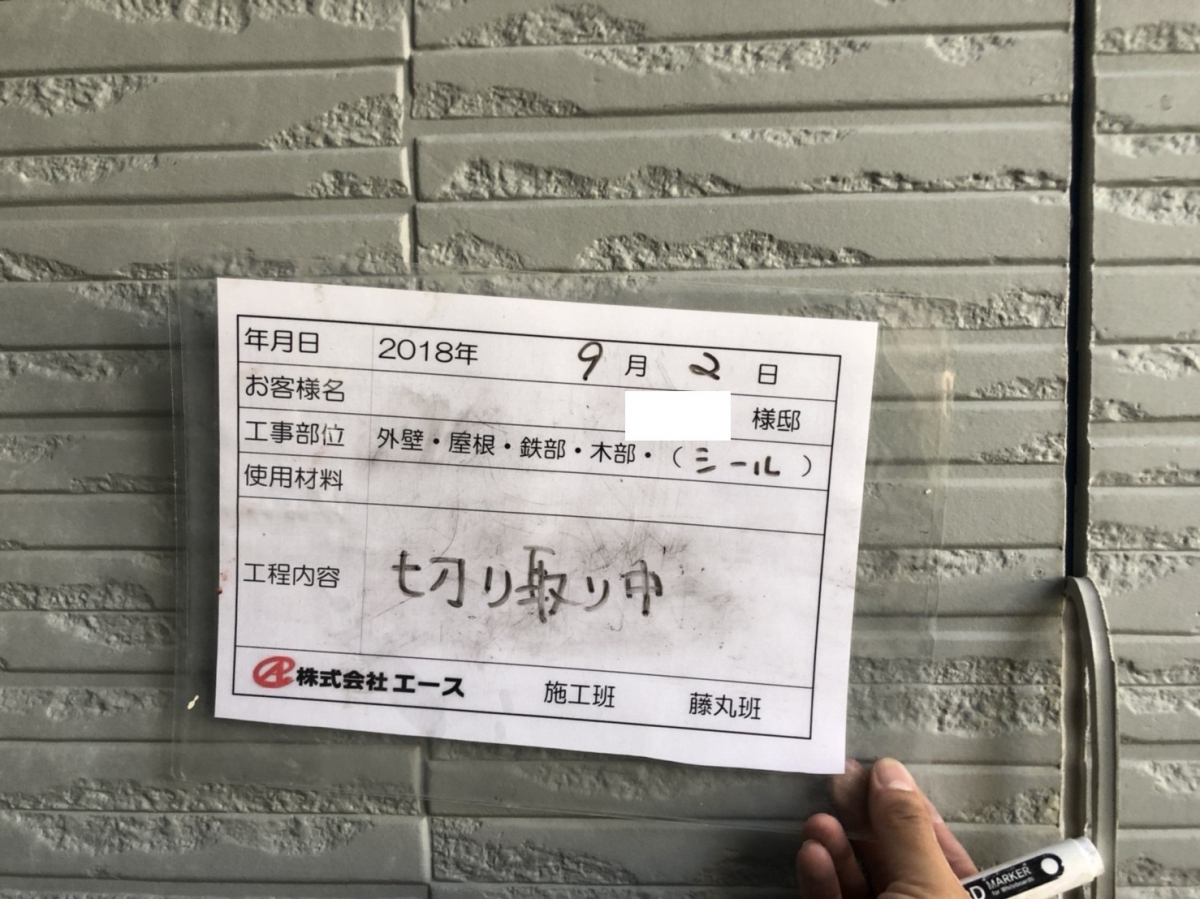 年月日 2018年 9月 2日
お客様名 様邸
工事部位 外壁・屋根・鉄部・木部・（シール）
使用材料
工程内容 切り取り中
株式会社エース 施工班 藤丸班
D MARKER
for Whiteboards